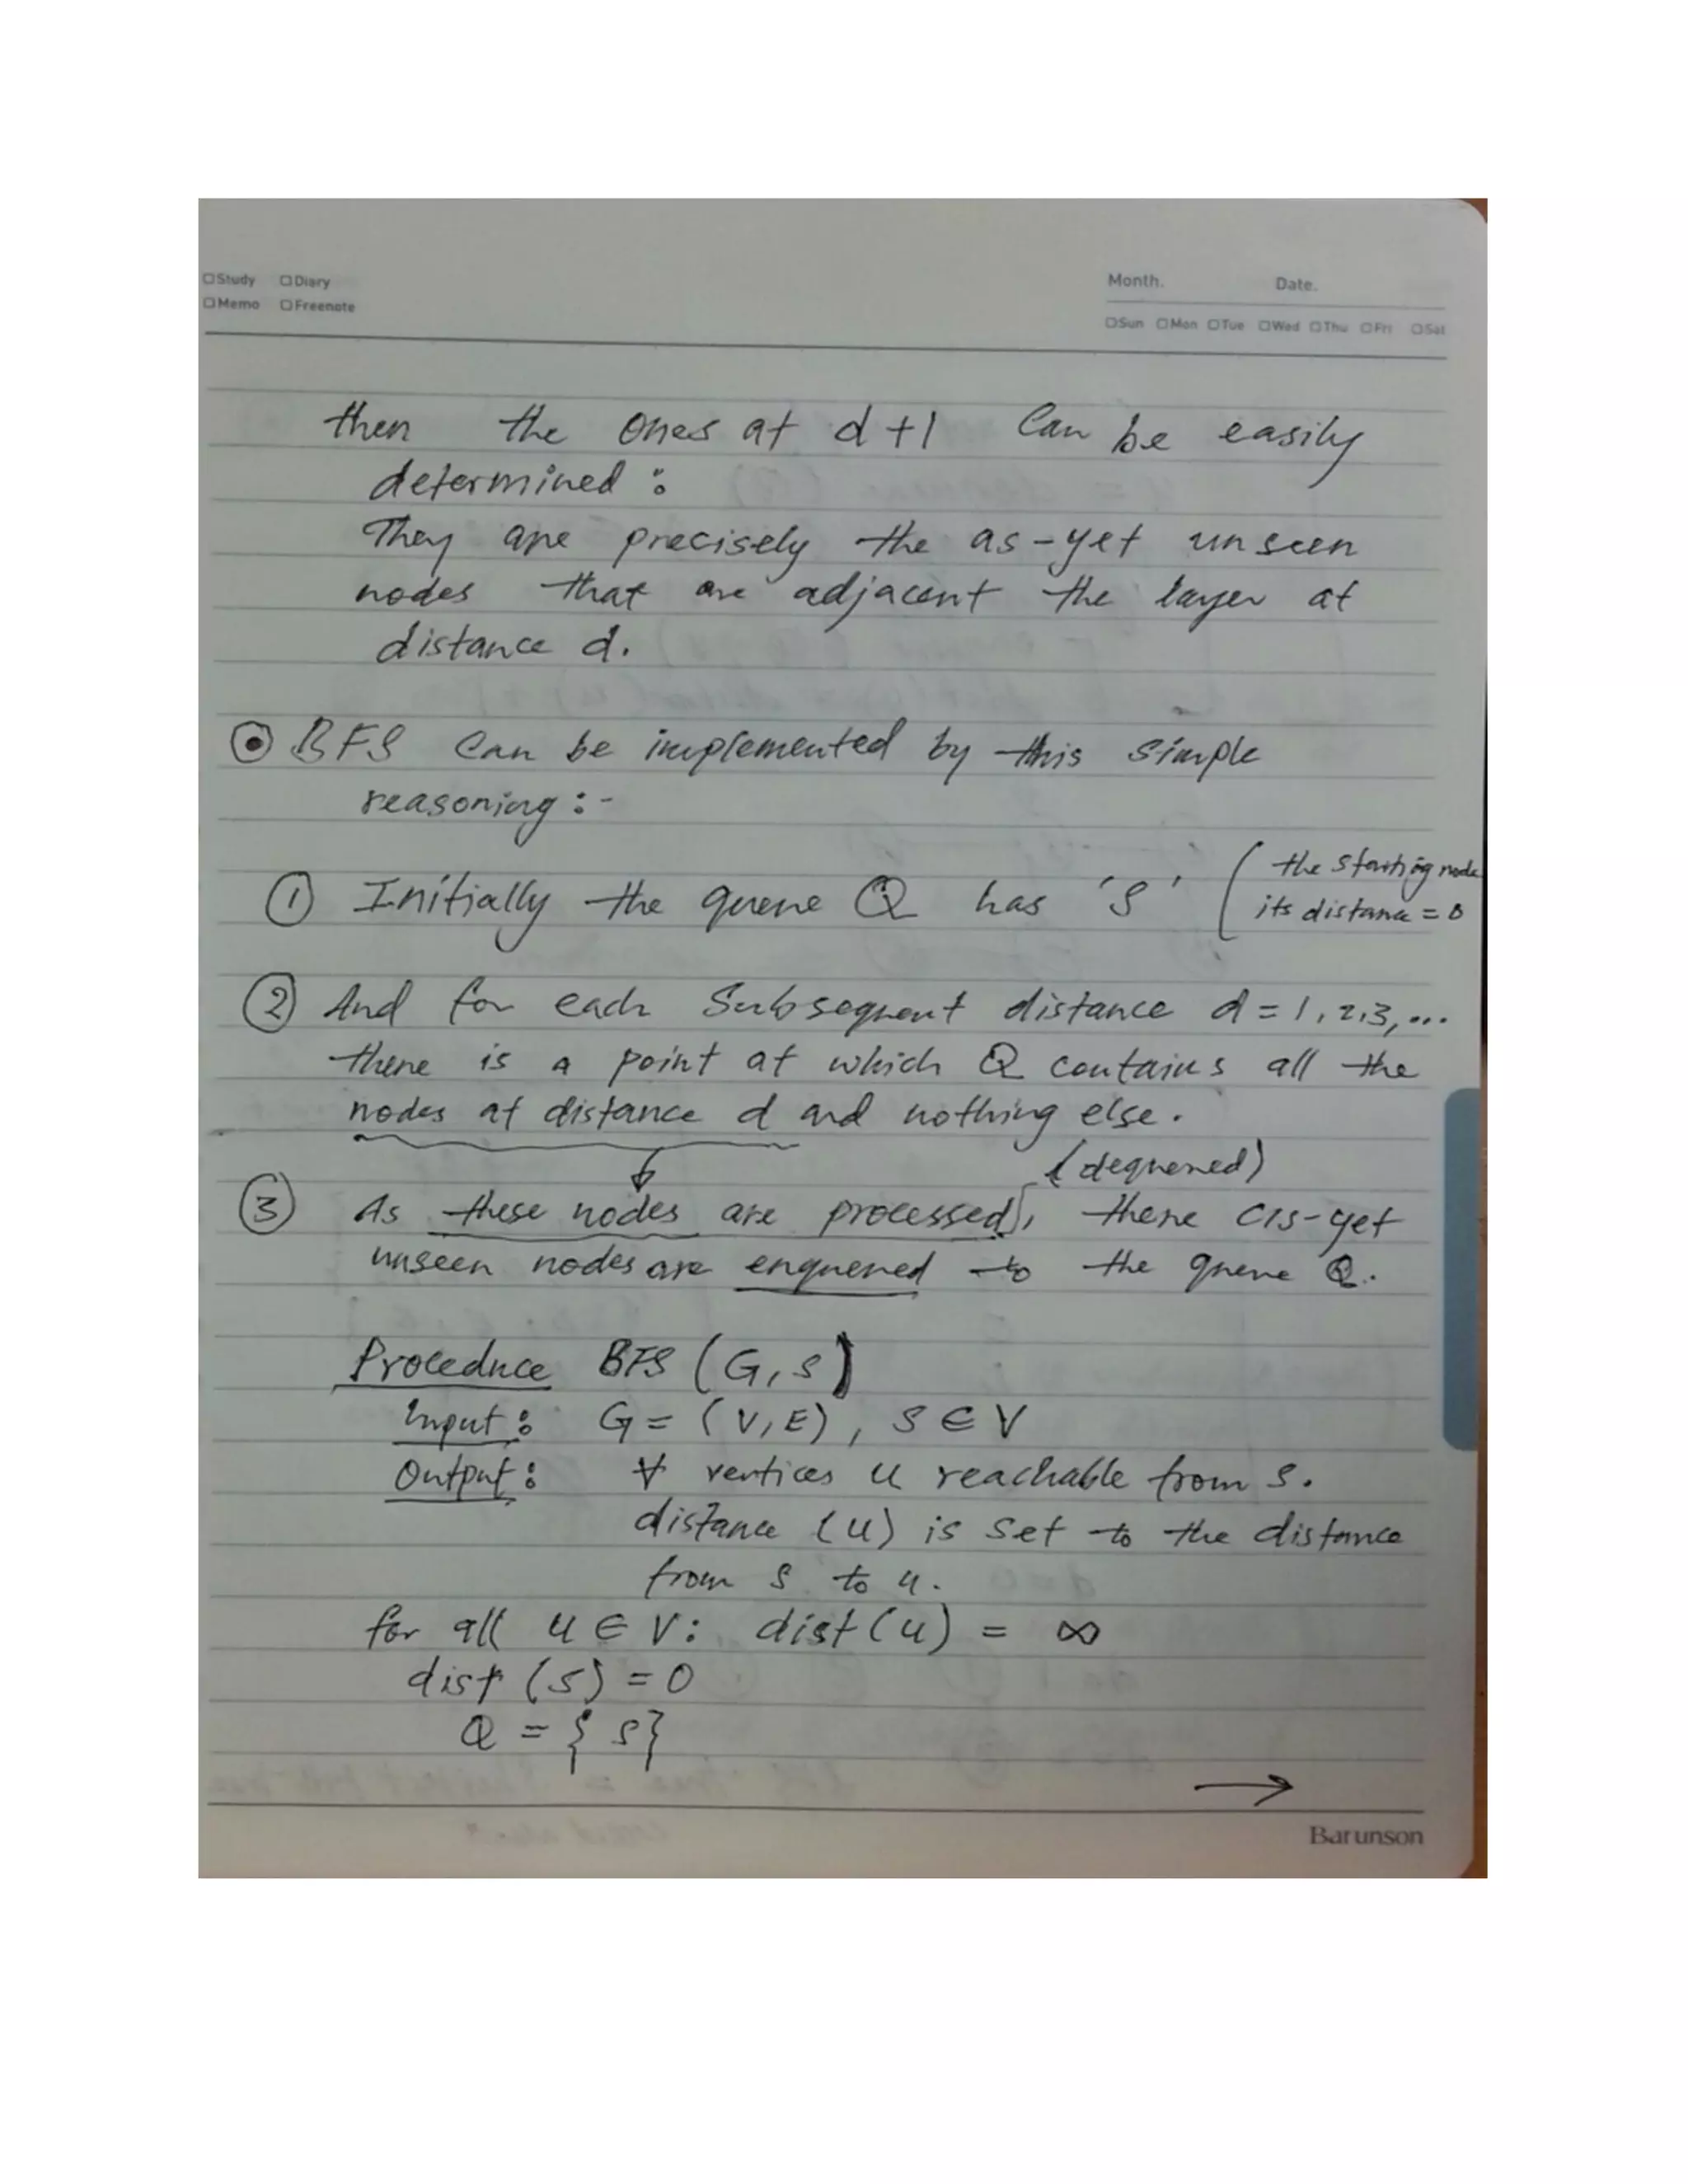 Study Diary
Memo Freenote
Month. Date.
Sun Mon Tue Wed Thu Fri Sat
then the ones at d+1 can be easily
determined :
They are precisely the as-yet unseen
nodes that are adjacent the layer at
distance d.
BFS can be implemented by this simple
reasoning :-
① Initially the queue Q has 's' ( the starting node
its distance = 0
② And for each Subsequent distance d = 1, 2, 3, ...
there is a point at which Q contains all the
nodes at distance d and nothing else.
(dequeued)
③ As these nodes are processed, there as-yet
unseen nodes are enqueued to the queue Q.
Procedure BFS (G, s)
Input : G = (V, E), s ∈ V
Output : ∀ vertices u reachable from s.
distance (u) is set to the distance
from s to u.
for all u ∈ V : dist (u) = ∞
dist (s) = 0
Q = { s }
→
Barunson